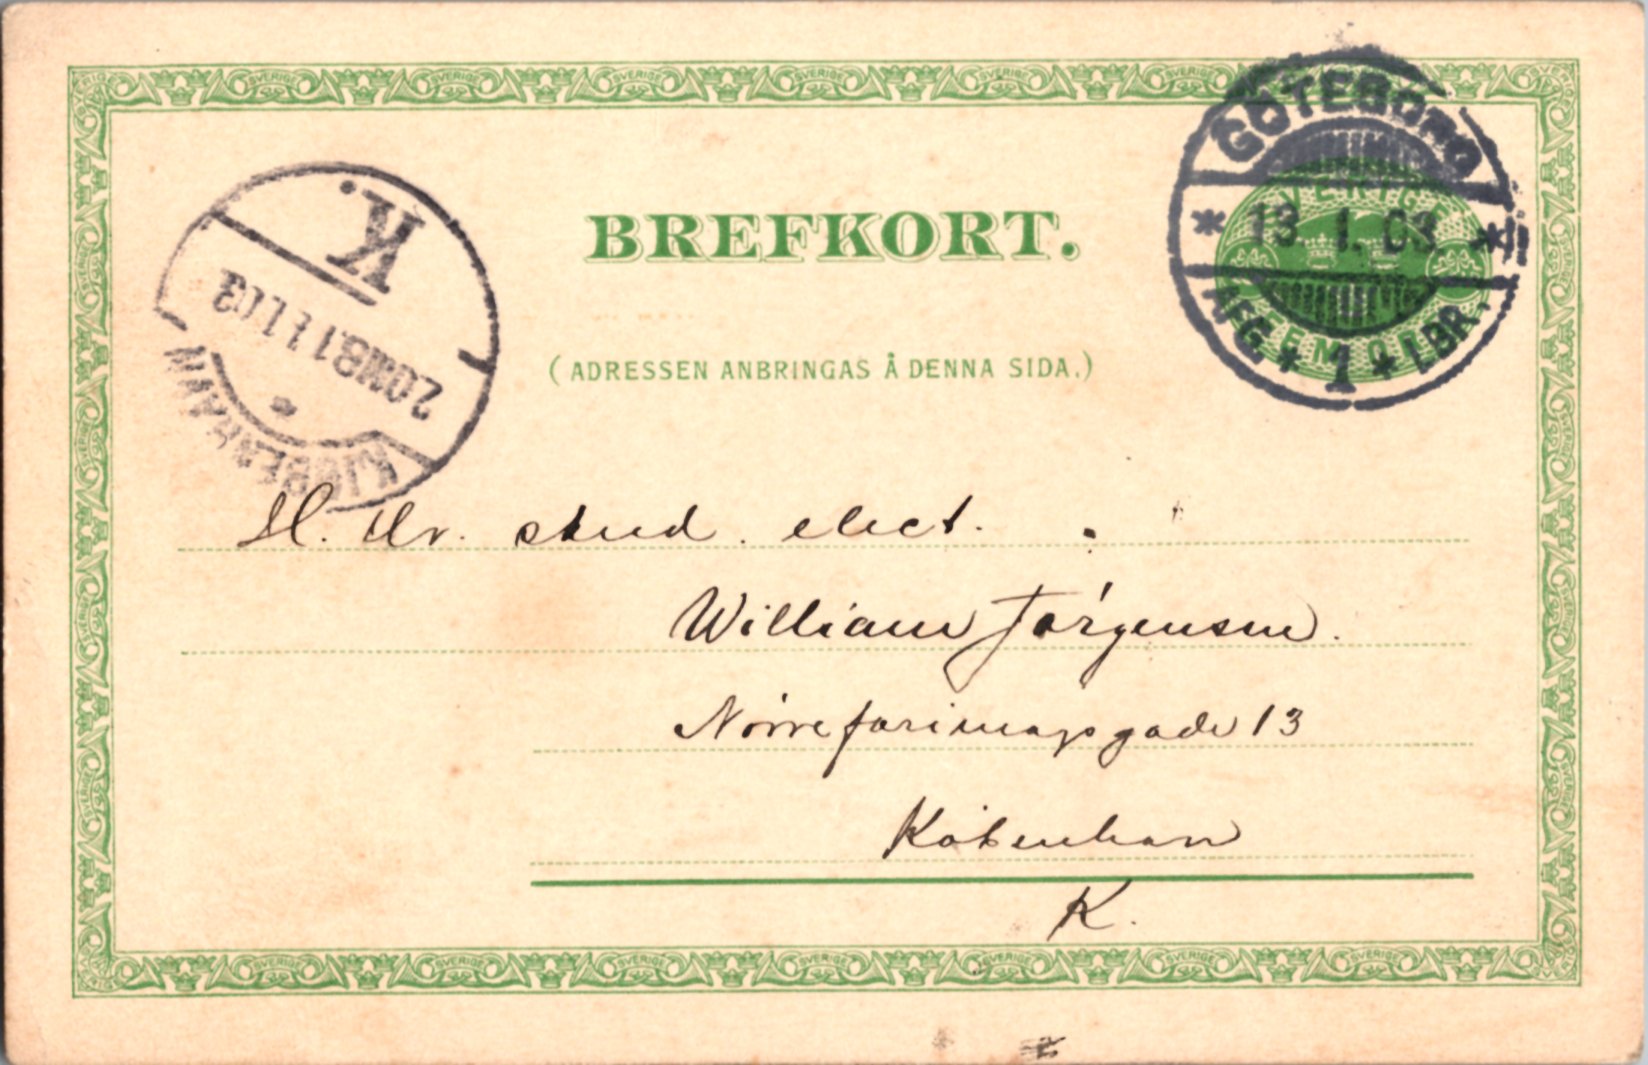 BREFKORT.
(ADRESSEN ANBRINGAS Å DENNA SIDA.)
GÖTEBORG
* 13 1. 03 *
AFG. * 1 * 1.BR.
SVERIGE
FEM ÖRE
K.
KJØBENHAVN
H. Hr. stud. elect.
William Jørgensen.
Nørrefarimagsgade 13
København
K.